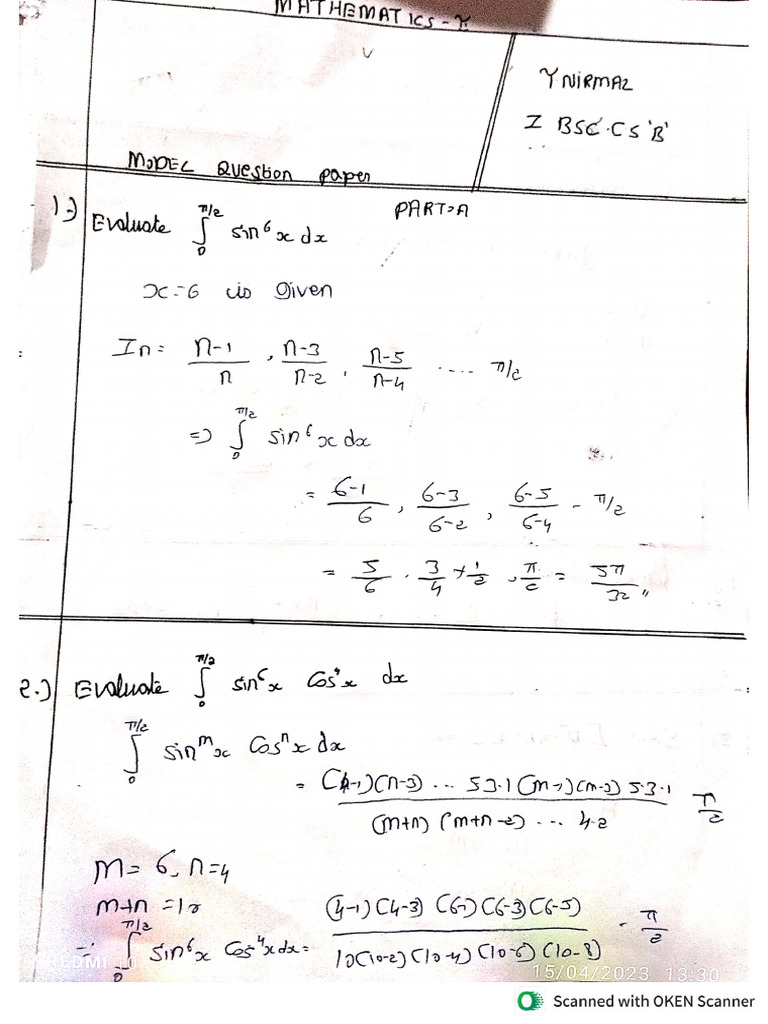 MATHEMATICS - II
Y NIRMAL
I BSC.CS 'B'
MODEL Question paper
PART-A
1.) Evaluate ∫₀^{π/2} sin⁶x dx
x=6 is given
In = (n-1)/n , (n-3)/(n-2) , (n-5)/(n-4) .... π/2
=> ∫₀^{π/2} sin⁶x dx
= (6-1)/6 , (6-3)/(6-2) , (6-5)/(6-4) - π/2
= 5/6 . 3/4 + 1/2 , π/2 = 5π/32 "
2.) Evaluate ∫₀^{π/2} sin⁶x cos⁴x dx
∫₀^{π/2} sin^m x cos^n x dx
= ((n-1)(n-3) ... 5 3.1 (m-1)(m-3) 5.3.1)/((m+n) (m+n-2) ... 4.2) π/2
m= 6, n=4
m+n =10
∴ ∫₀^{π/2} sin⁶x cos⁴x dx = ((4-1)(4-3)(6-1)(6-3)(6-5))/(10(10-2)(10-4)(10-6)(10-8)) - π/2
REDMI 10
15/04/2023 13:30
Scanned with OKEN Scanner